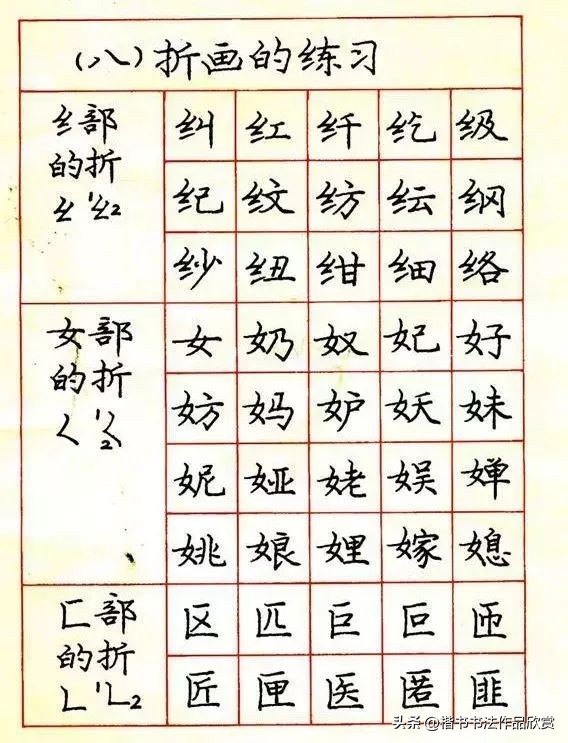 (八)折画的练习
纟部
的折
纠 红 纤 纥 级
纪 纹 纺 纭 纲
纱 纽 绀 细 络
女部
的折
女 奶 奴 妃 好
妨 妈 妒 妖 妹
妮 娅 姥 娱 婵
姚 娘 娌 嫁 媳
匚部
的折
区 匹 巨 叵 匝
匠 匣 医 匿 匪
头条 @楷书书法作品欣赏